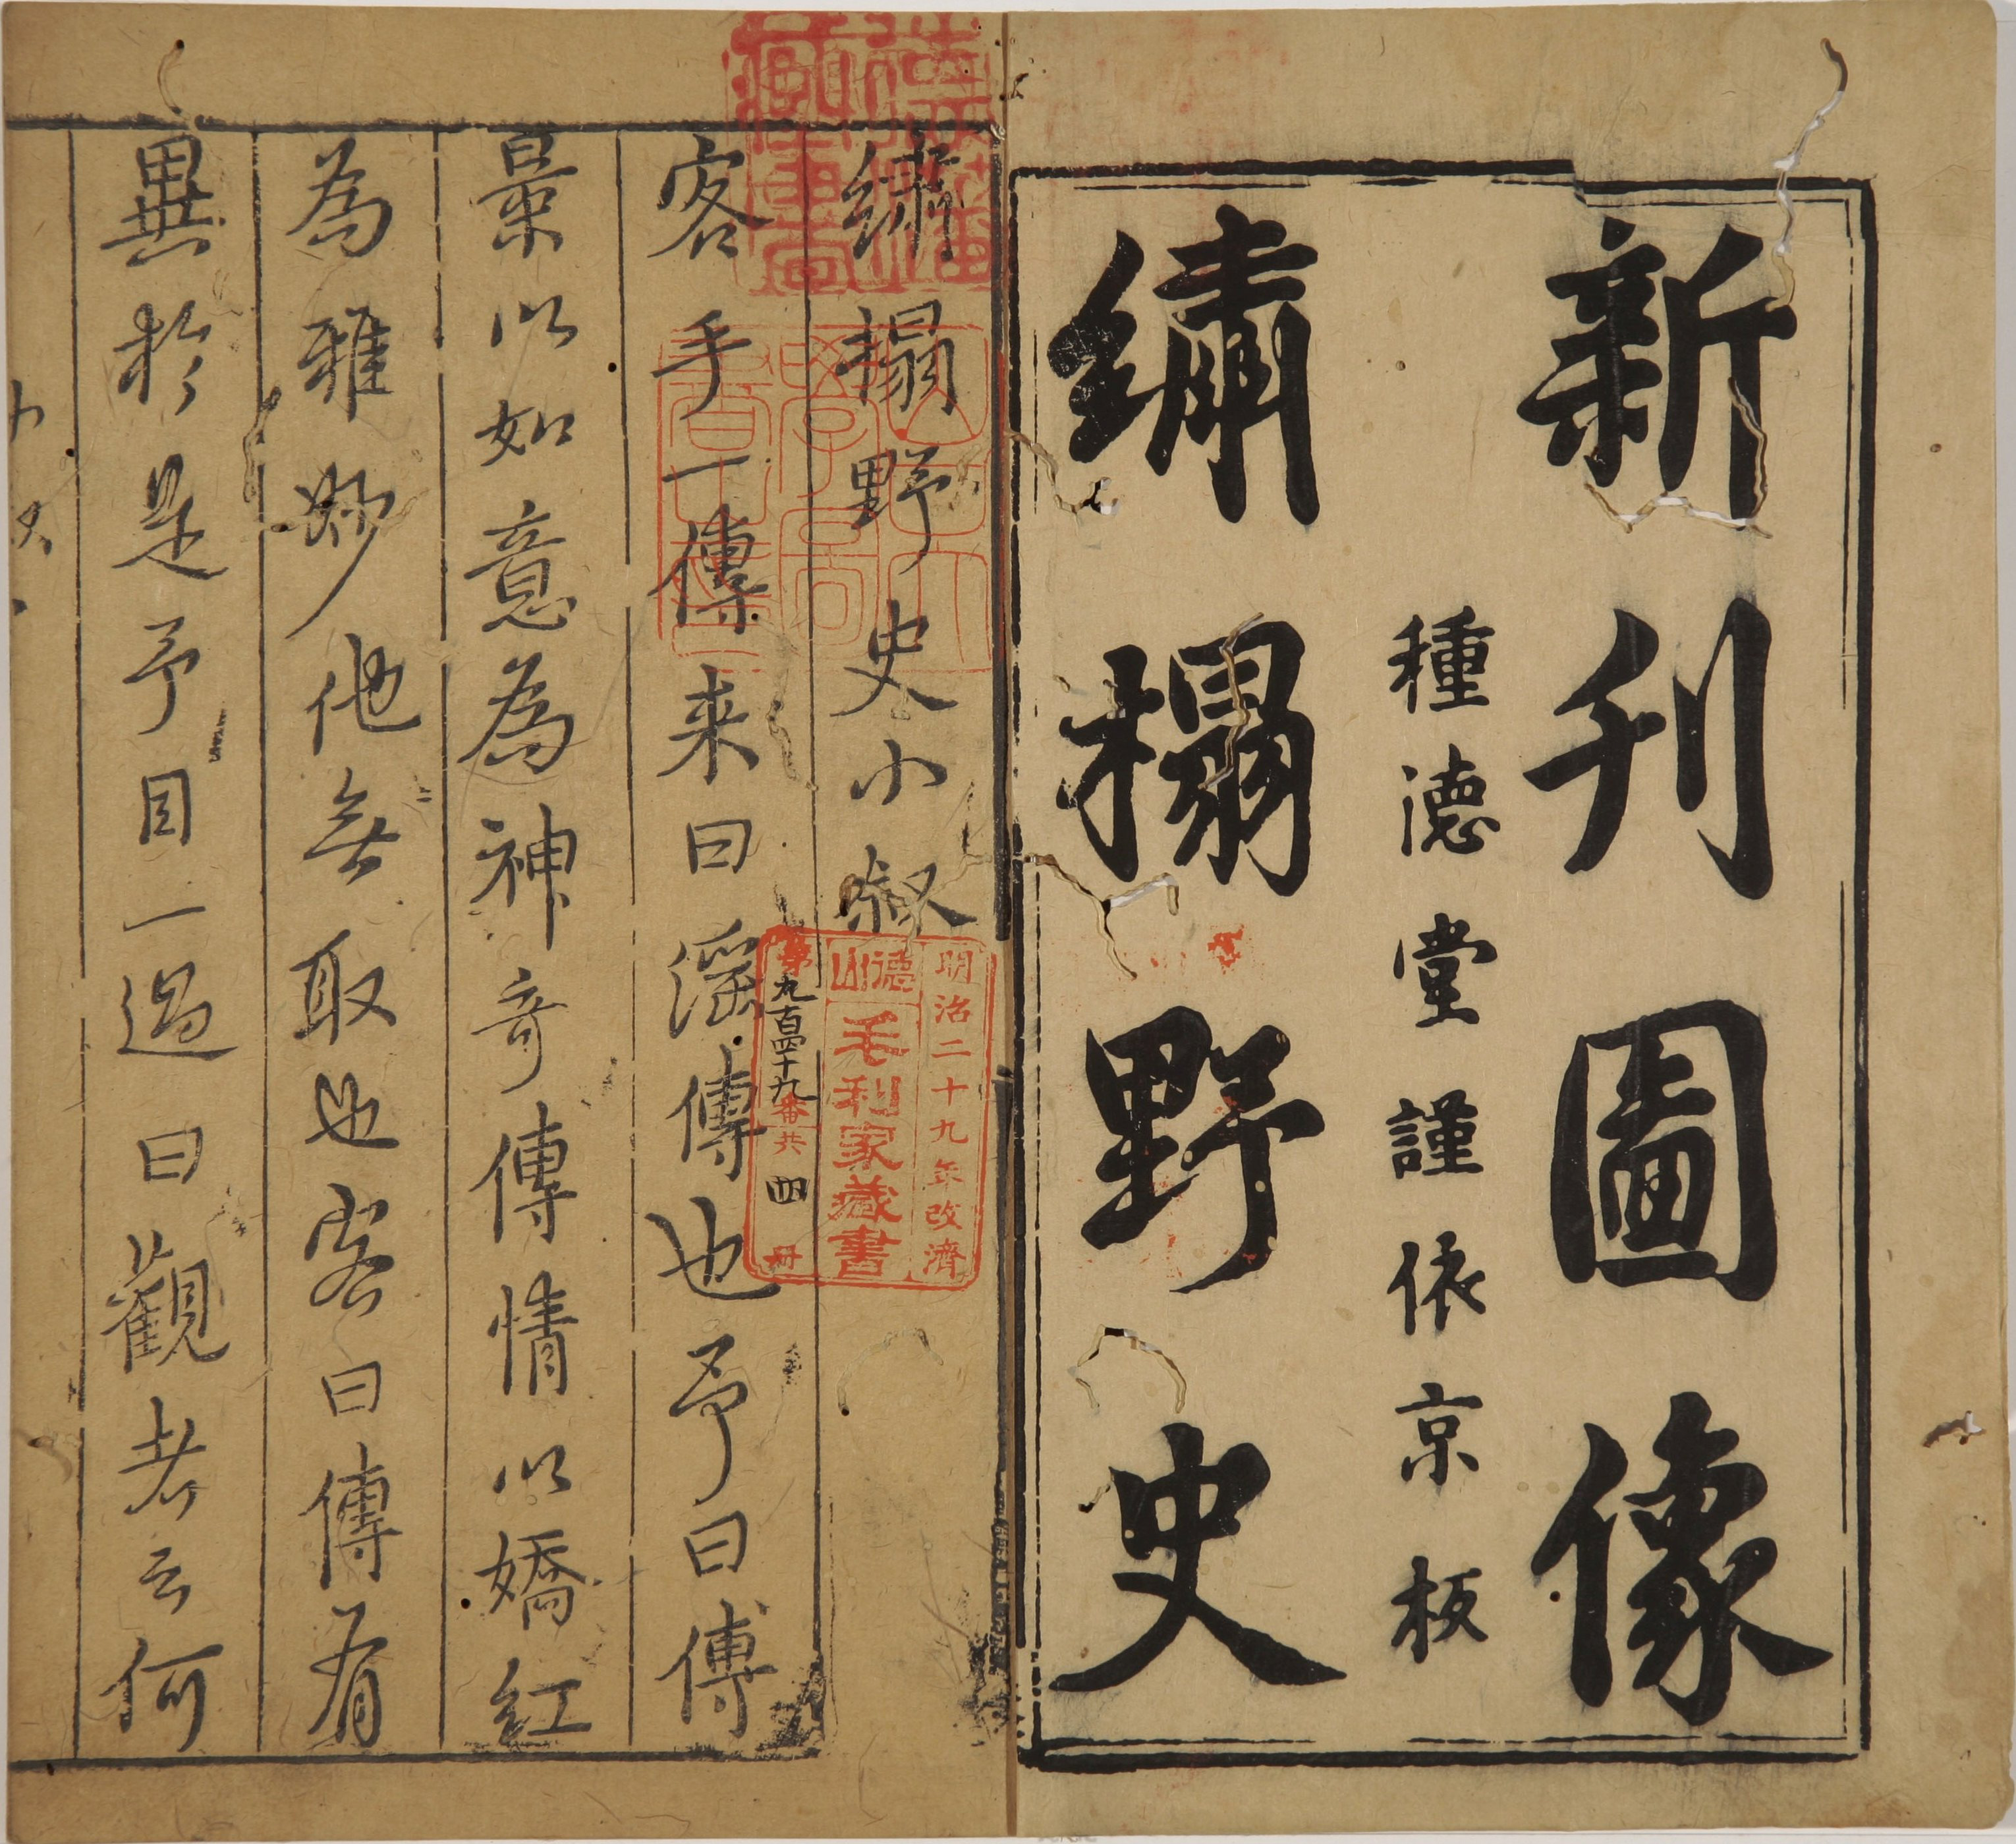 新刊圖像
種德堂謹依京板
繡榻野史
繡榻野史小敘
客手一傳来曰淫傳也予曰傳
景以如意為神奇傳情以嬌紅
為雅妙他無取也客曰傳有
異於是予目一過曰觀者云何
明治二十九年改濟
德山
毛利家藏書
第九百四十九番共四冊